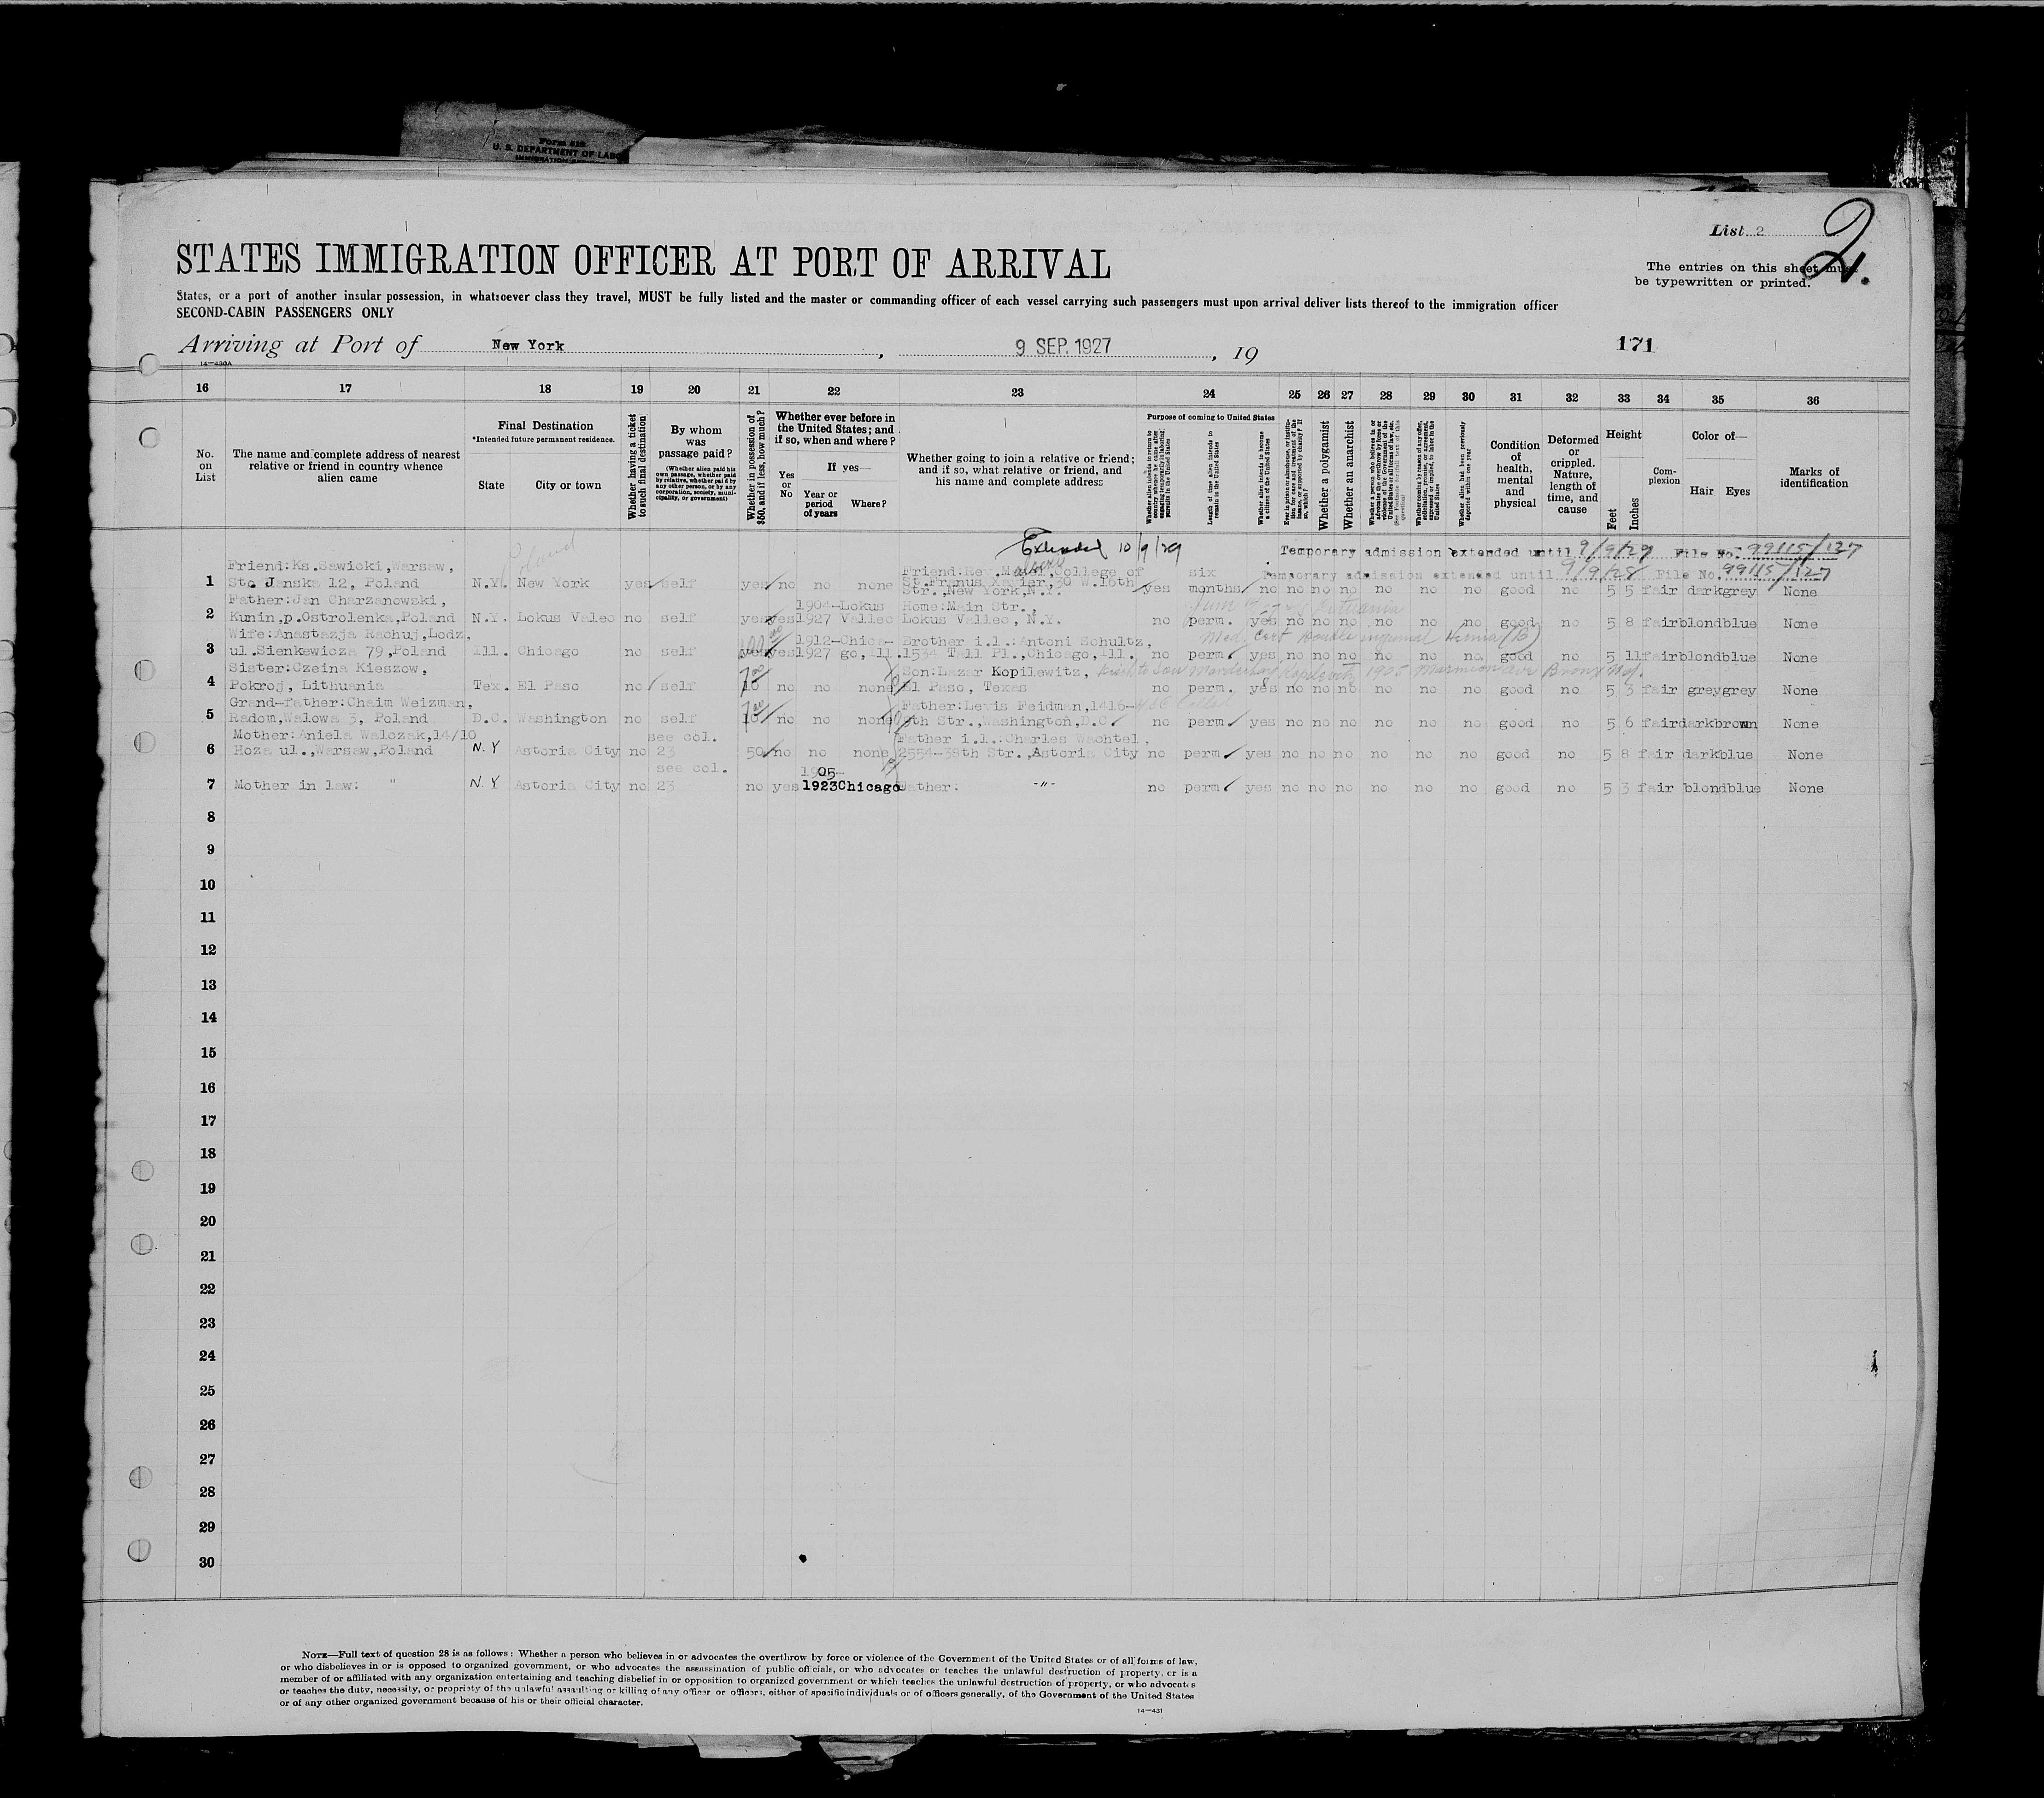 Form 519
U. S. DEPARTMENT OF LABO
IMMIGRATION
List 2
2.
STATES IMMIGRATION OFFICER AT PORT OF ARRIVAL
The entries on this sheet must
be typewritten or printed.
States, or a port of another insular possession, in whatsoever class they travel, MUST be fully listed and the master or commanding officer of each vessel carrying such passengers must upon arrival deliver lists thereof to the immigration officer
SECOND-CABIN PASSENGERS ONLY
Arriving at Port of New York, 9 SEP. 1927, 19
171
14—430A
16 17 18 19 20 21 22 23 24 25 26 27 28 29 30 31 32 33 34 35 36
No. on List
The name and complete address of nearest relative or friend in country whence alien came
Final Destination
*Intended future permanent residence.
State City or town
Whether having a ticket to such final destination
By whom was passage paid?
(Whether alien paid his own passage, whether paid by relative, whether paid by any other person, or by any corporation, society, municipality, or government)
Whether in possession of $50, and if less, how much?
Whether ever before in the United States; and if so, when and where?
Yes or No
If yes—
Year or period of years
Where?
Whether going to join a relative or friend; and if so, what relative or friend, and his name and complete address
Purpose of coming to United States
Whether alien intends to return to country whence he came after engaging temporarily in laboring pursuits in the United States
Length of time alien intends to remain in the United States
Whether alien intends to become a citizen of the United States
Ever in prison or almshouse, or institution for care and treatment of the insane, or supported by charity? If so, which?
Whether a polygamist
Whether an anarchist
Whether a person who believes in or advocates the overthrow by force or violence of the Government of the United States or all forms of law, &c. (See Footnote for full text of this question)
Whether coming by reason of any offer, solicitation, promise, or agreement, expressed or implied, to labor in the United States
Whether alien had been previously deported within one year
Condition of health, mental and physical
Deformed or crippled. Nature, length of time, and cause
Height
Feet Inches
Complexion
Color of—
Hair Eyes
Marks of identification
Poland
Extended 10/9/29
Temporary admission extended until 9/9/29 File No. 99115/127
Temporary admission extended until 9/9/28 File No. 99115/127
Friend:Ks.Sawicki,Warsaw, Friend:Rev. College of six
1 Sto Janska 12, Poland N.Y. New York yes self yes no no none St.Franus Xavier,30 W.16th Str.,New York,N.Y. yes months no no no no no no no good no 5 5 fair dark grey None
Father:Jan Charzanowski, 1904-Lokus Home:Main Str.,
2 Kunin,p.Ostrolenka,Poland N.Y. Lokus Valec no self yes yes 1927 Vallec Lokus Vallec, N.Y. no perm. yes no no no no no no good no 5 8 fair blond blue None
Wife:Anastazja Rachuj,Lodz, 1912-Chica- Brother i.l.:Antoni Schultz, Med. Cert Double inguinal Hernia (B)
3 ul.Sienkewicza 79,Poland Ill. Chicago no self yes yes 1927 go,Ill. 1534 Tell Pl.,Chicago,Ill. no perm yes no no no no no no good no 5 11 fair blond blue None
Sister:Czeina Kieszow, Son:Lazar Kopilewitz, 1925 Marmion ave Bronx
4 Pokroj, Lithuania Tex. El Paso no self 10 no no none El Paso, Texas no perm. yes no no no no no no good no 5 3 fair grey grey None
Grand-father:Chaim Weizman, Father:Lewis Feidman,1416-
5 Radom,Walowa 3, Poland D.C. Washington no self 10 no no none 9th Str.,Washington,D.C. no perm yes no no no no no no good no 5 6 fair dark brown None
Mother:Aniela Walczak,14/10 see col. Father i.l.:Charles Wachtel,
6 Hoza ul.,Warsaw,Poland N.Y Astoria City no 23 50 no no none 2554-38th Str.,Astoria City no perm yes no no no no no no good no 5 8 fair dark blue None
see col. 1905-
7 Mother in law: " N.Y Astoria City no 23 no yes 1923 Chicago Father: -"- no perm yes no no no no no no good no 5 3 fair blond blue None
8
9
10
11
12
13
14
15
16
17
18
19
20
21
22
23
24
25
26
27
28
29
30
NOTE—Full text of question 28 is as follows: Whether a person who believes in or advocates the overthrow by force or violence of the Government of the United States or of all forms of law,
or who disbelieves in or is opposed to organized government, or who advocates the assassination of public officials, or who advocates or teaches the unlawful destruction of property, or is a
member of or affiliated with any organization entertaining and teaching disbelief in or opposition to organized government or which teaches the unlawful destruction of property, or who advocates
or teaches the duty, necessity, or propriety of the unlawful assaulting or killing of any officer or officers, either of specific individuals or of officers generally, of the Government of the United States
or of any other organized government because of his or their official character.
14—431